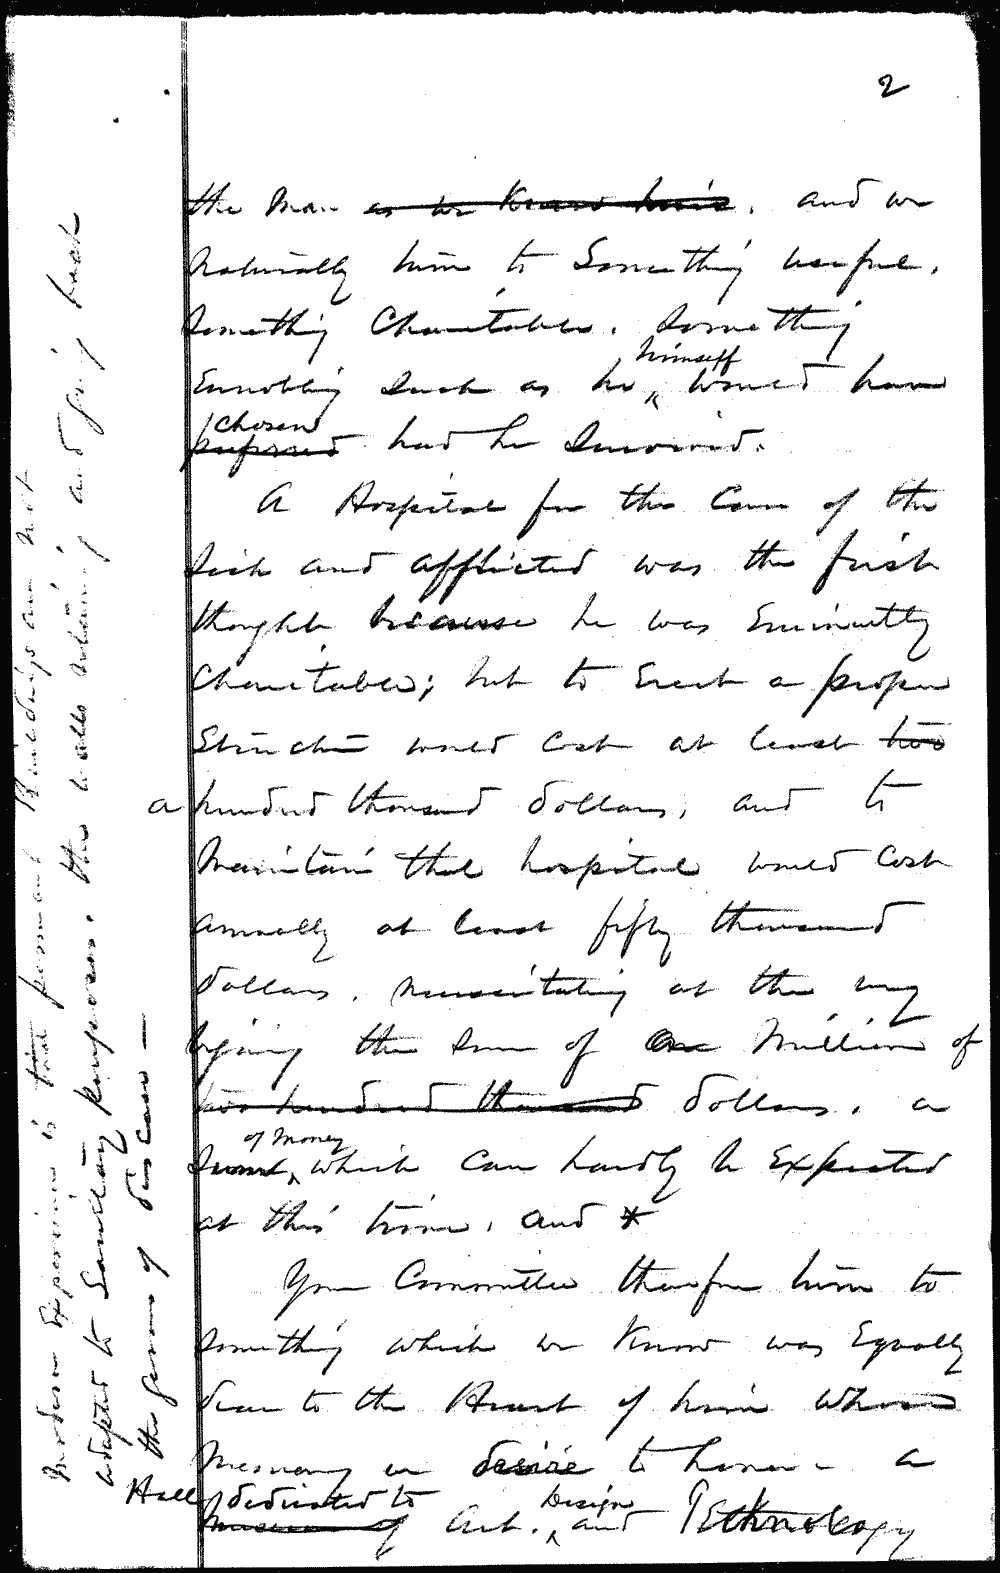 2
the man as we knew him, and we
naturally turn to Something useful,
Something Charitable, Something
himself
Ennobling Such as he ‸ would have
chosen
preferred had he Survived.
A Hospital for the Care of the
Sick and afflicted was the first
thought because he was Eminently
Charitable; but to Erect a proper
Structure would cost at least two
a hundred thousand dollars, and to
Maintain that hospital would Cost
annually at least fifty thousand
dollars, necessitating at the very
begining the Sum of One Million of
two hundred thousand dollars, a
of Money
Sum ‸ which can hardly be Expected
at this time, and *
Your Committee therefore turn to
Something which we Know was Equally
dear to the Heart of him whose
Memory we desire to honor - a
Hall dedicated to Design
Museum of Art, ‸ and Technology
Modern Experience is that permanent Buildings are not
adapted to Sanitary purposes, the walls retaining and giving back
the germs of disease —